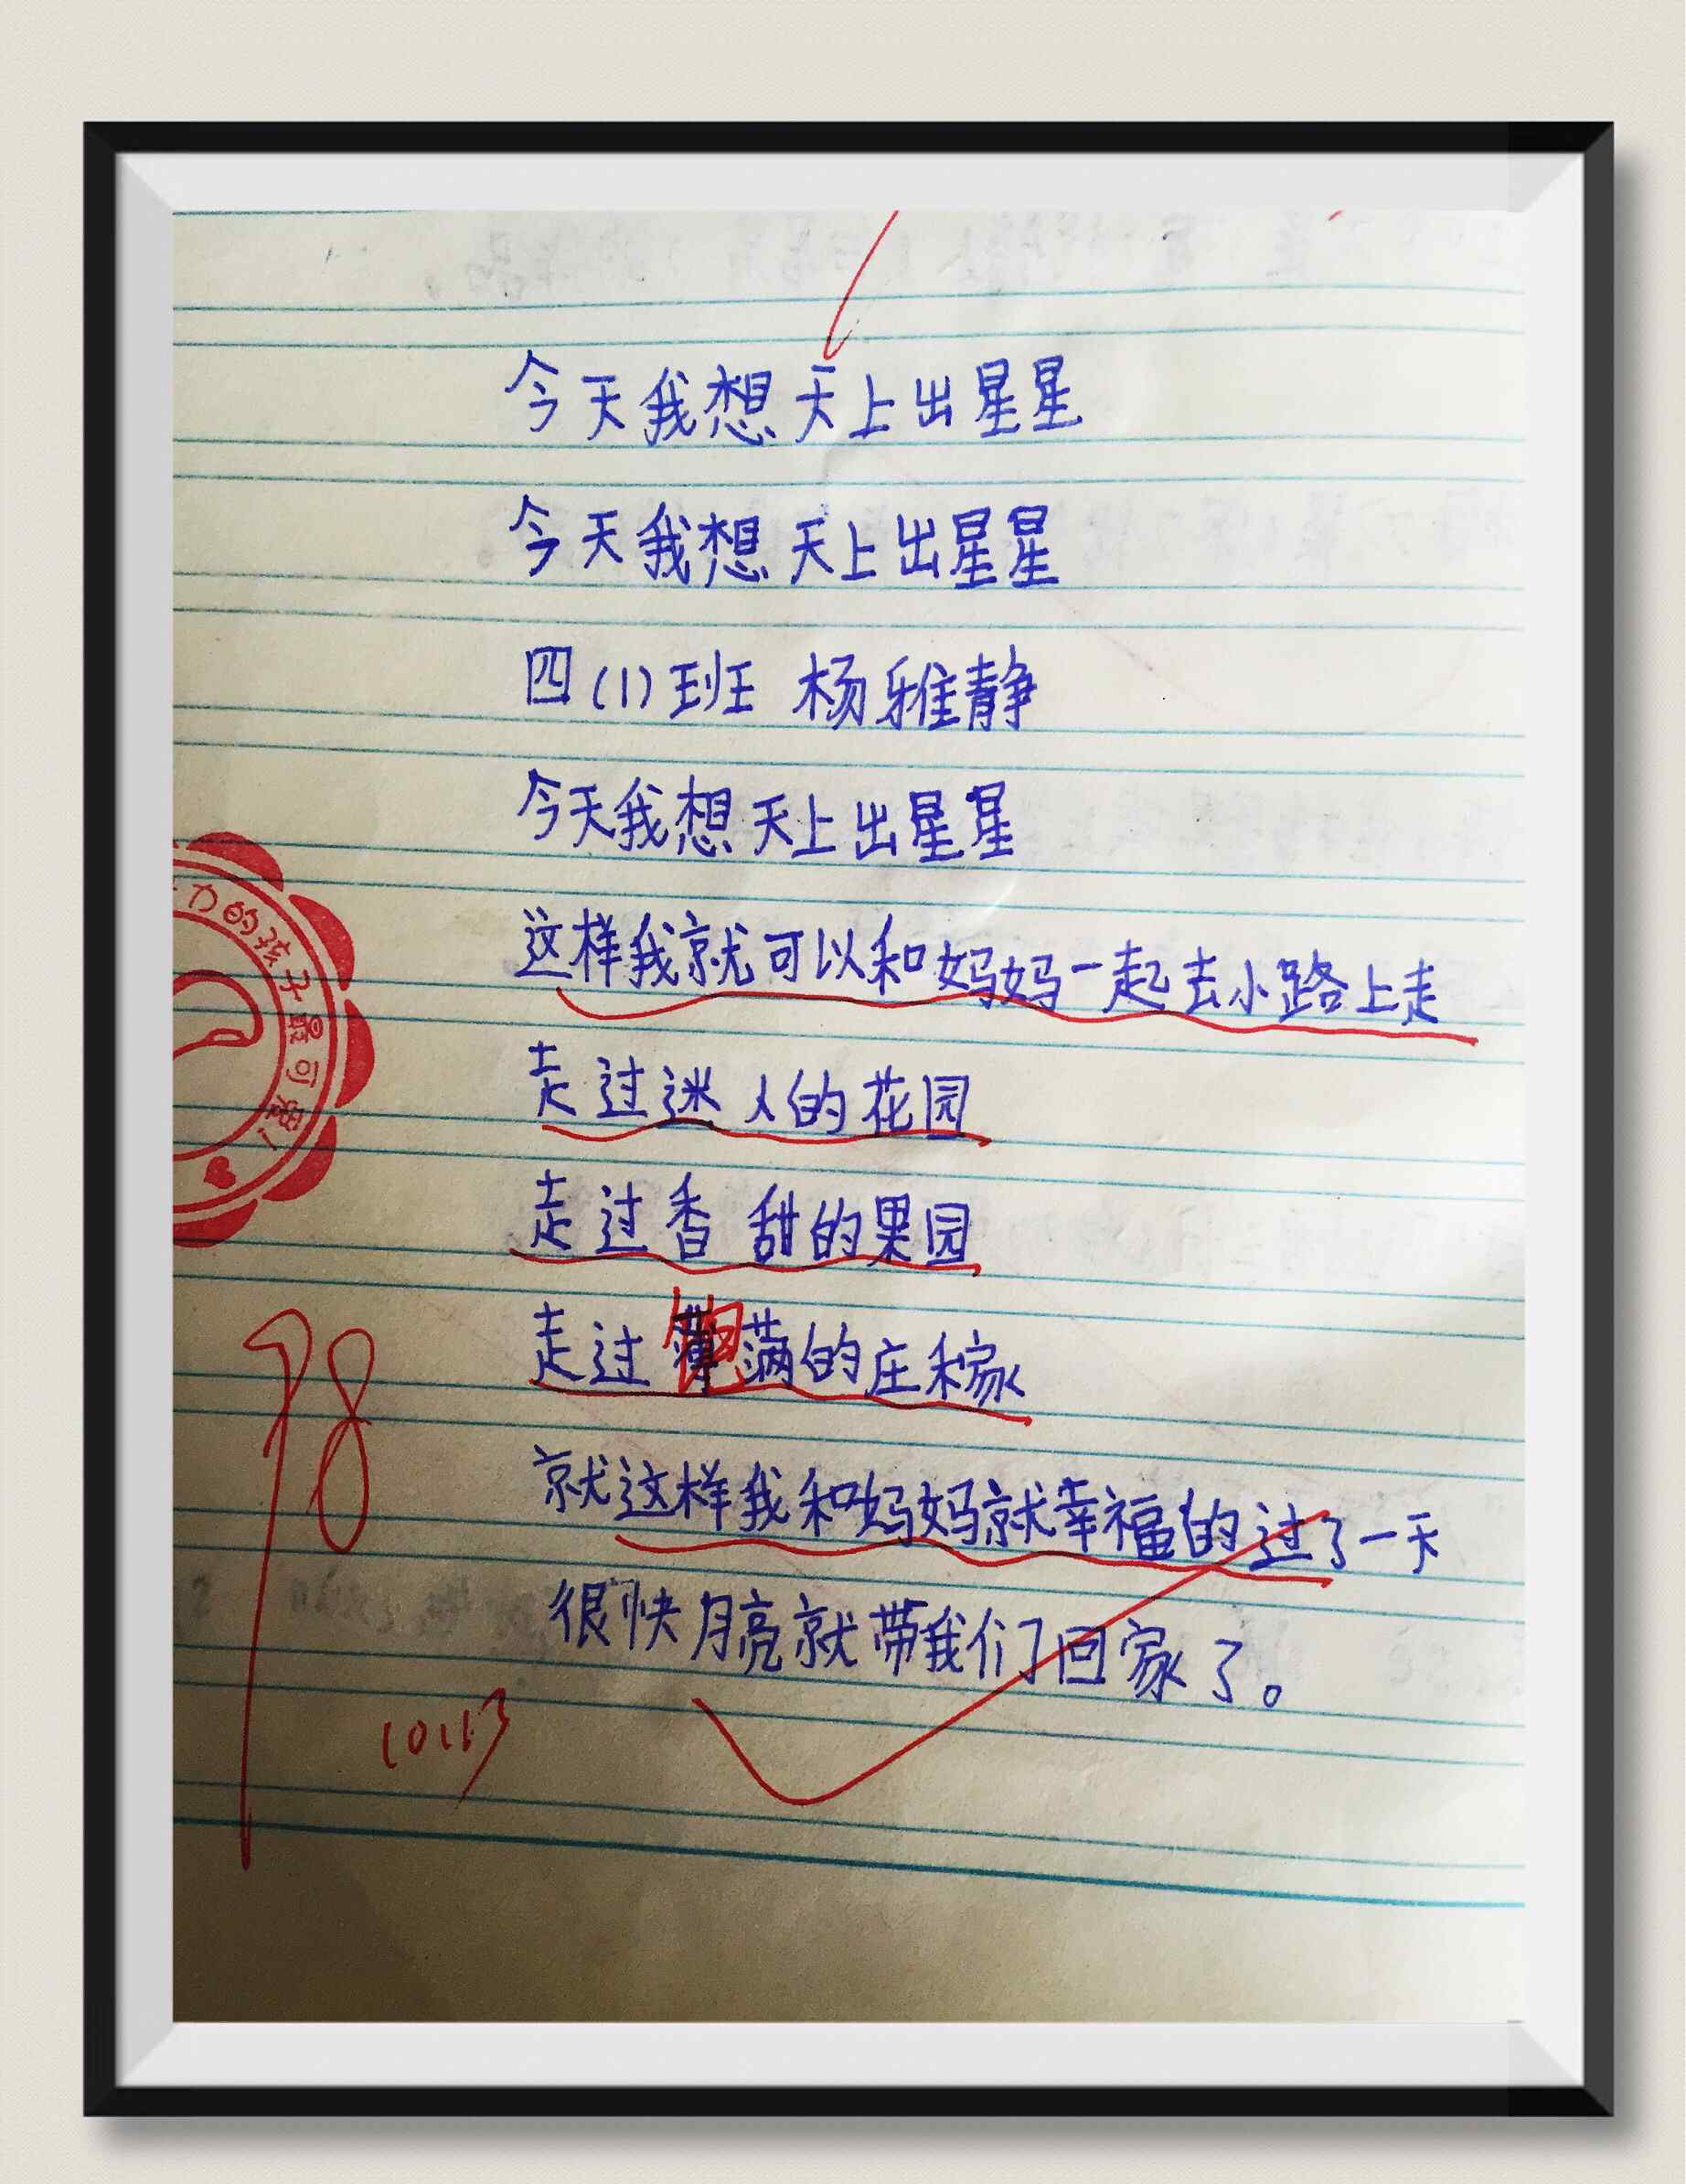 今天我想天上出星星
今天我想天上出星星
四(1)班 杨雅静
今天我想天上出星星
这样我就可以和妈妈一起去小路上走
走过迷人的花园
走过香甜的果园
走过饱满的庄稼
就这样我和妈妈就幸福的过了一天
很快月亮就带我们回家了。
力的孩子最可爱!
98
10.13